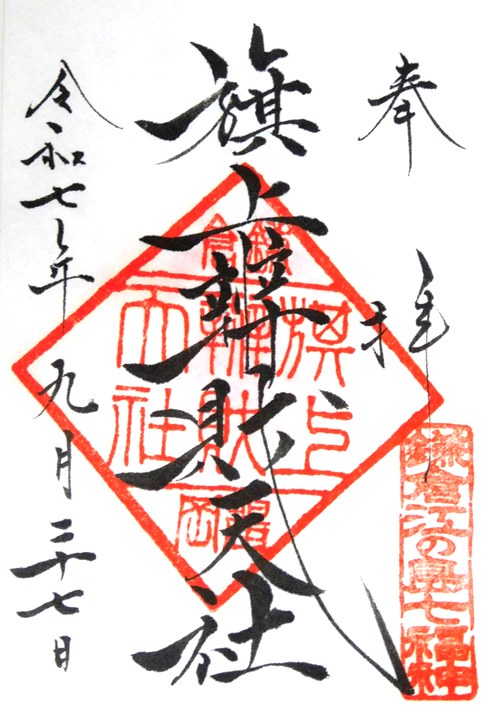 奉拝
鎌倉江の島七福神
旗上辨財天社
鎌倉
旗上
辨財
天社
令和七年九月二十七日